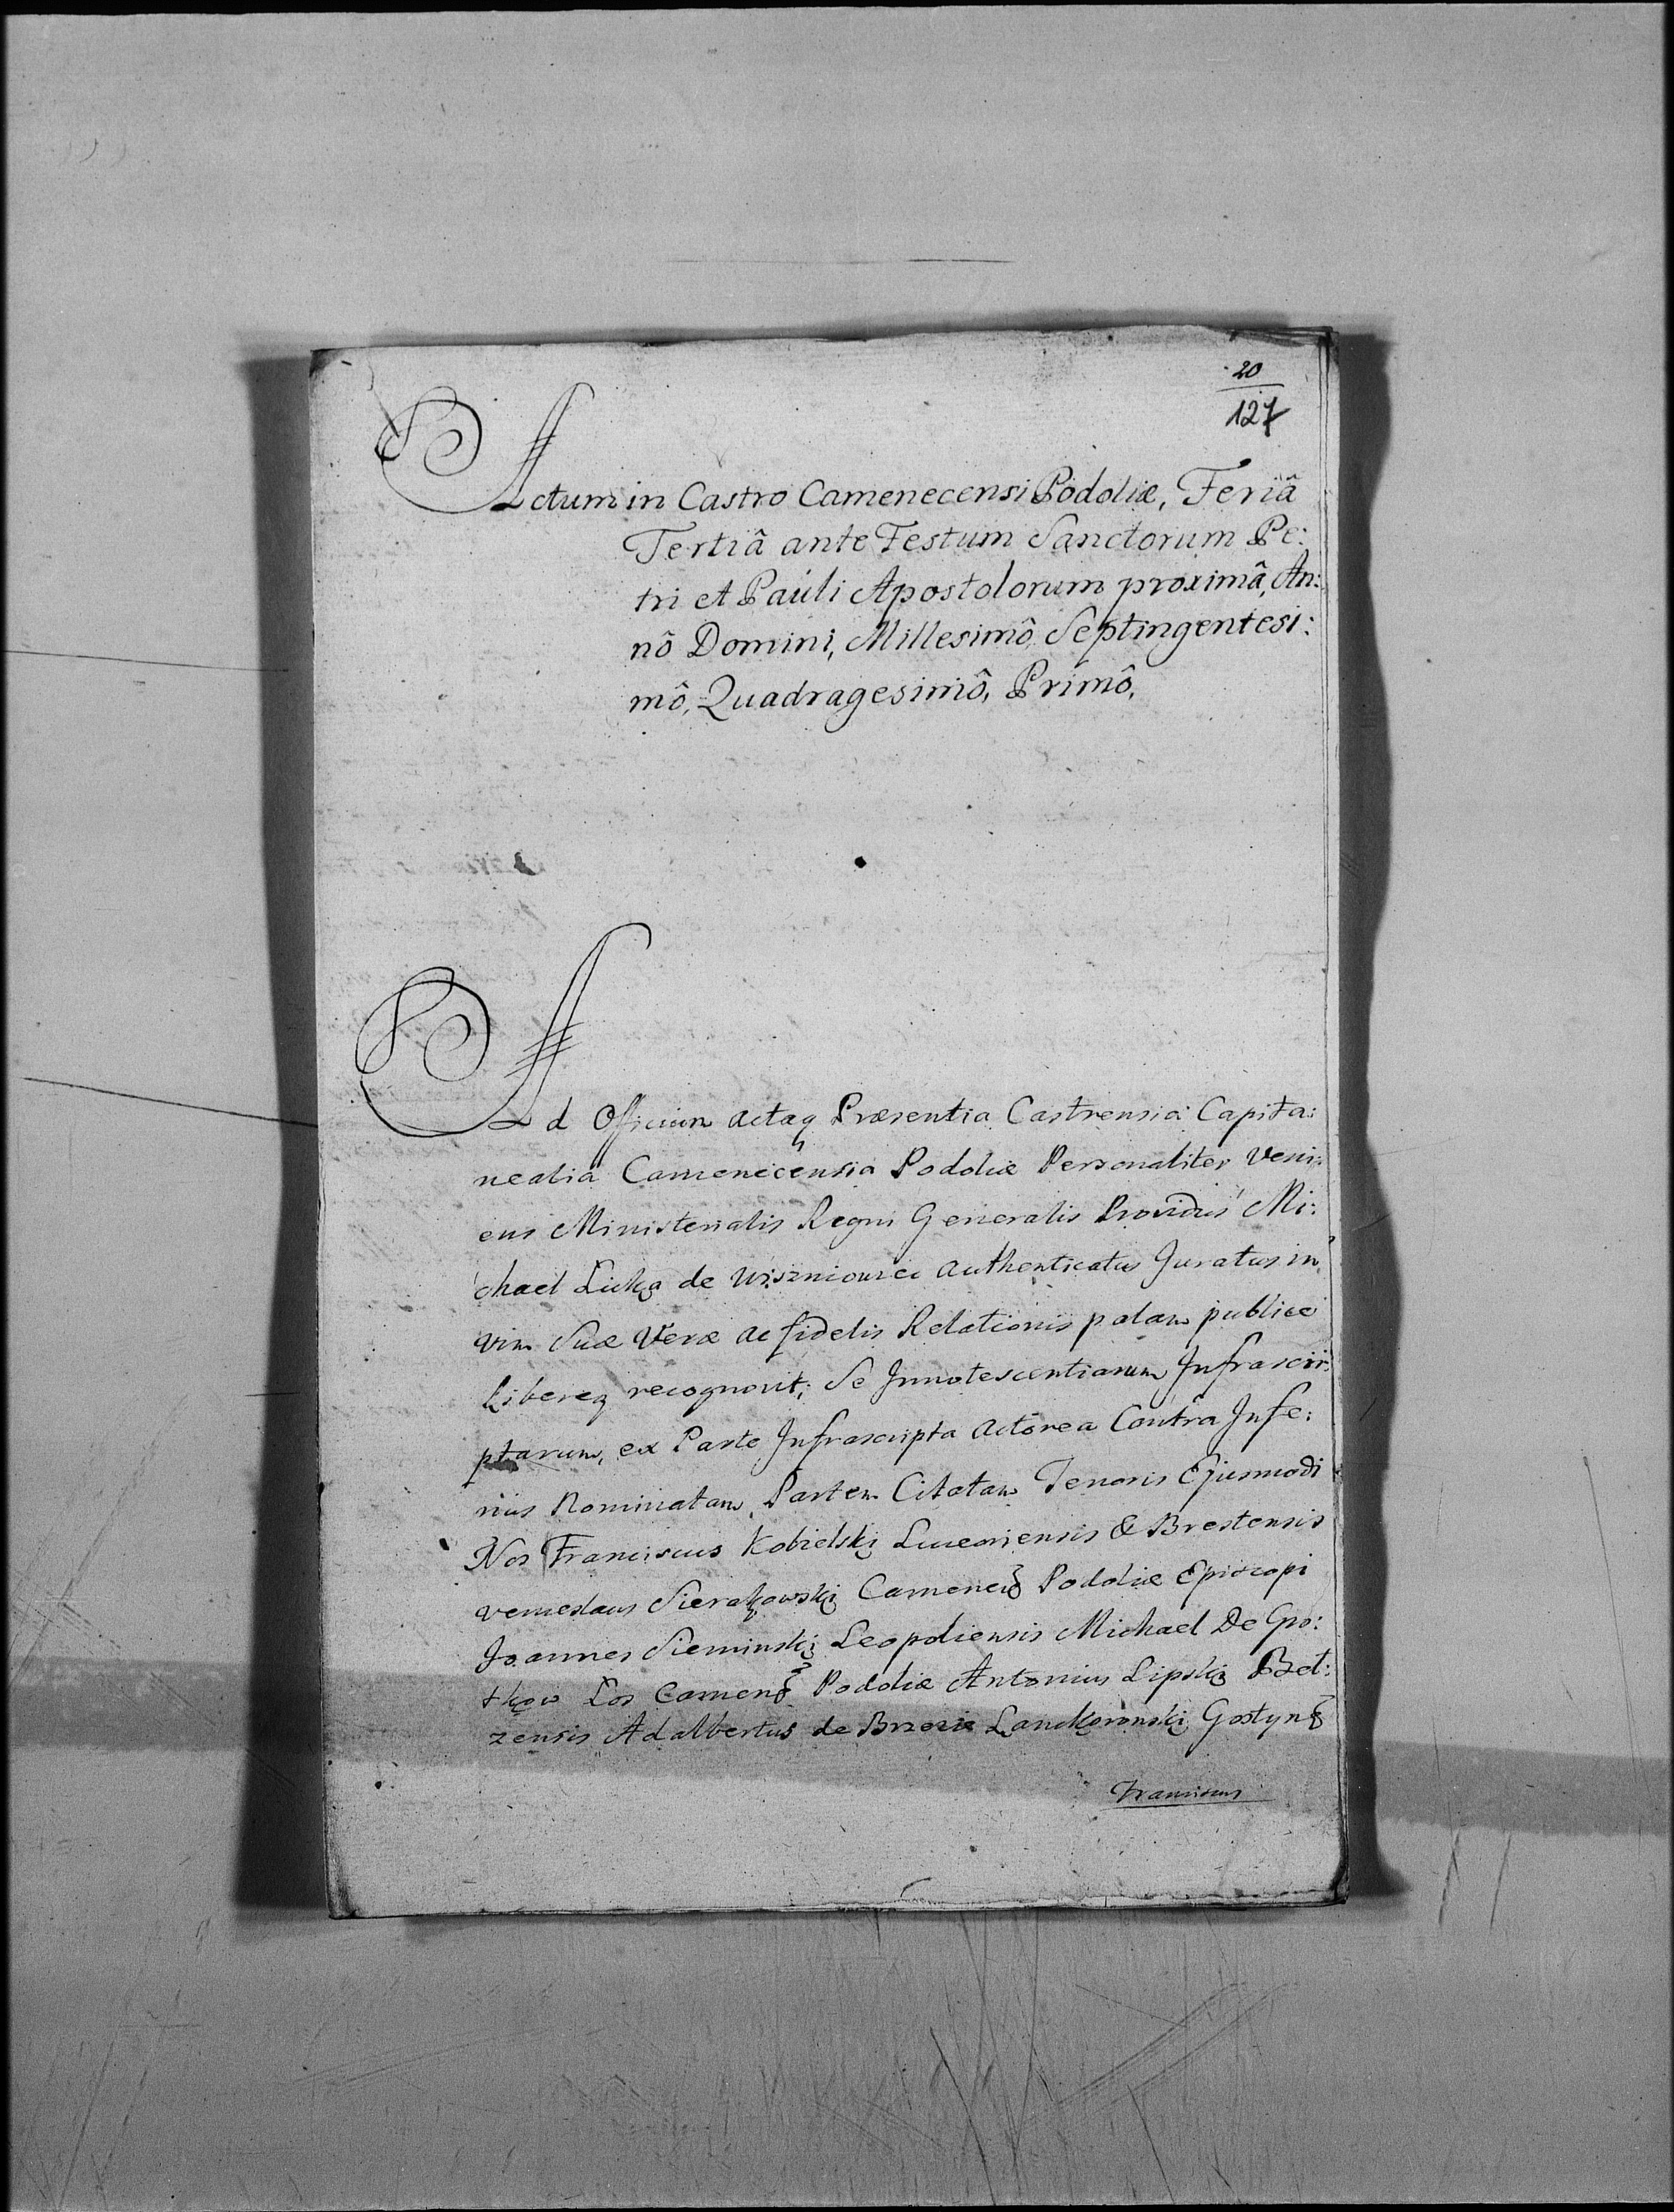 20
127
Actum in Castro Camenecensi Podoliæ, Feriâ
Tertiâ ante Festum Sanctorum Pe:
tri et Pauli Apostolorum proximâ, An:
nô Domini, Millesimô, Septingentesi:
mô, Quadragesimô, Primô,
Ad Officium actaq Præsentia Castrensia Capita:
nealia Camenecensia Podoliæ Personaliter Veni:
ens Ministerialis Regni Generalis Providus Mi:
chael de Wiszniowce authenticatus Juratus in
vim Suæ Veræ ac fidelis Relationis palam publice
Libereq recognovit, Se Innotescentiarum Infrascri:
ptarum, ex Parte Infrascripta actorea Contra Infe:
rius Nominatam Partem Citatam Tenoris Ejusmodi
Nos Franciscus Kobielski Luceoriensis & Brestensis
Venceslaus Sierakowski Camenec Podoliæ Episcopi
Joannes Sieminski Leopoliensis Michael De Gro:
tkow Los Camen Podoliæ Antonius Lipski Bel:
zensis Adalbertus de Brzezie Lanckoronski Gostyn
Franciscus